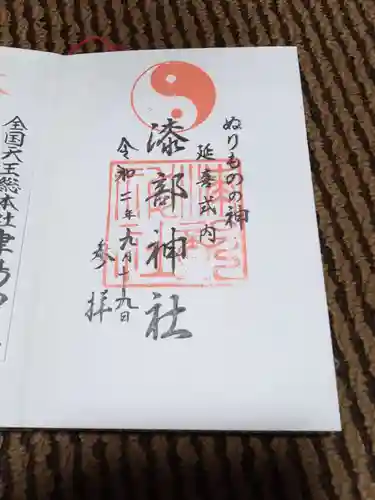 ぬりものの神
延喜式内
漆部神社
令和二年九月十九日
参拝
全国天王総本社